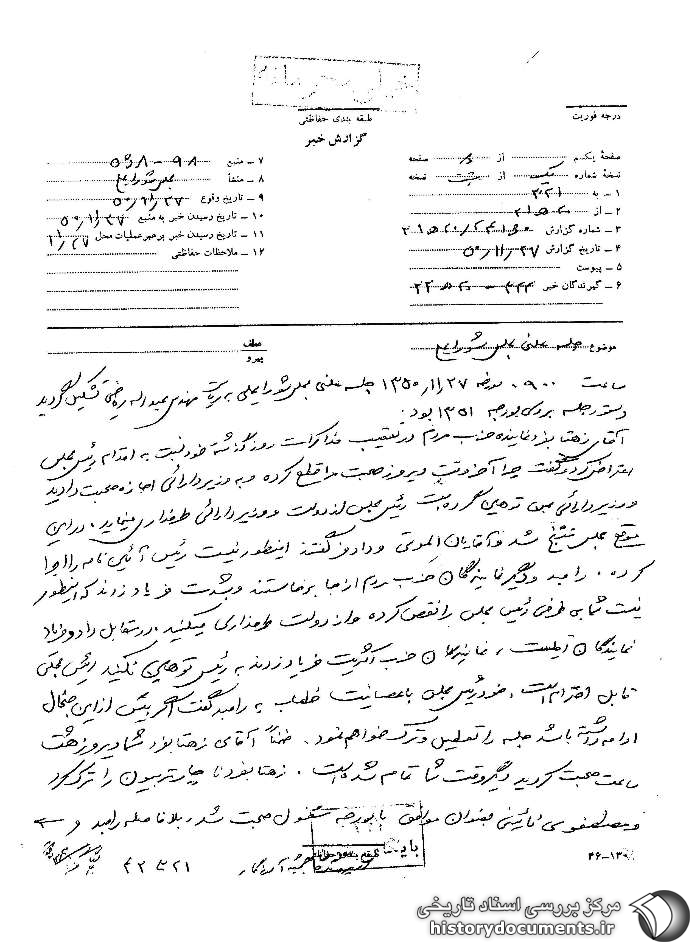 خیلی محرمانه
طبقه بندی حفاظتی
درجه فوریت
گزارش خبر
صفحه یکم از صفحه
نسخه شماره یک از نسخه
۱ – به ۳۲۱
۲ – از ۲۰ه۲۱
۳ – شماره گزارش
۴ – تاریخ گزارش ۵۰/۱۱/۲۷
۵ – پیوست
۶ – گیرندگان خبر
۷ – منبع
۸ – منشأ مجلس شورایملی
۹ – تاریخ وقوع ۵۰/۱۱/۲۷
۱۰ – تاریخ رسیدن خبر به منبع ۵۰/۱۱/۲۷
۱۱ – تاریخ رسیدن خبر برهبر عملیات محل ۱۱/۲۷
۱۲ – ملاحظات حفاظتی
موضوع جلسه علنی مجلس شورایملی
عطف
پیرو
ساعت ۰۹۰۰ مورخه ۱۳۵۰/۱۱/۲۷ جلسه علنی مجلس شورایملی به ریاست مهندس عبداله ریاضی تشکیل گردید
دستور جلسه بررسی بودجه ۱۳۵۱ بود.
آقای زهتاب فرد نماینده حزب مردم در تعقیب مذاکرات روز گذشته خود نسبت به اقدام رئیس مجلس
اعتراض کرد و گفت چرا آخر وقت دیروز صحبت مرا قطع کرده و به وزیر دارائی اجازه صحبت دادید
و وزیر دارائی بمن توهین کرده است رئیس مجلس از دولت و وزیر دارائی طرفداری مینماید. در این
موقع مجلس متشنج شد و آقایان الموتی و دادفر گفتند اینطور نیست رئیس آئین نامه را اجرا
کرده. رامبد و دیگر نمایندگان حزب مردم از جا برخاستند و بشدت فریاد زدند که اینطور
نیست شما بی طرفی رئیس مجلس را نقص کرده و از دولت طرفداری میکنید. در مقابل داد و فریاد
نمایندگان اقلیت، نمایندگان حزب اکثریت فریاد زدند به رئیس توهین نکنید رئیس مجلس
قابل احترام است. خود رئیس مجلس با عصبانیت خطاب به رامبد گفت اگر بیش از این جنجال
ادامه داشته باشد جلسه را تعطیل و ترک خواهم نمود. ضمناً آقای زهتاب فرد شما دیروز هشت
ساعت صحبت کردید دیگر وقت شما تمام شده است. زهتاب فرد ناچار تریبون را ترک کرد
و مصطفوی نائینی بعنوان موافق با بودجه مشغول صحبت شد. بلافاصله رامبد و
۳۲۱ ۴۲
۴۶–۱۳
مرکز بررسی اسناد تاریخی
historydocuments.ir